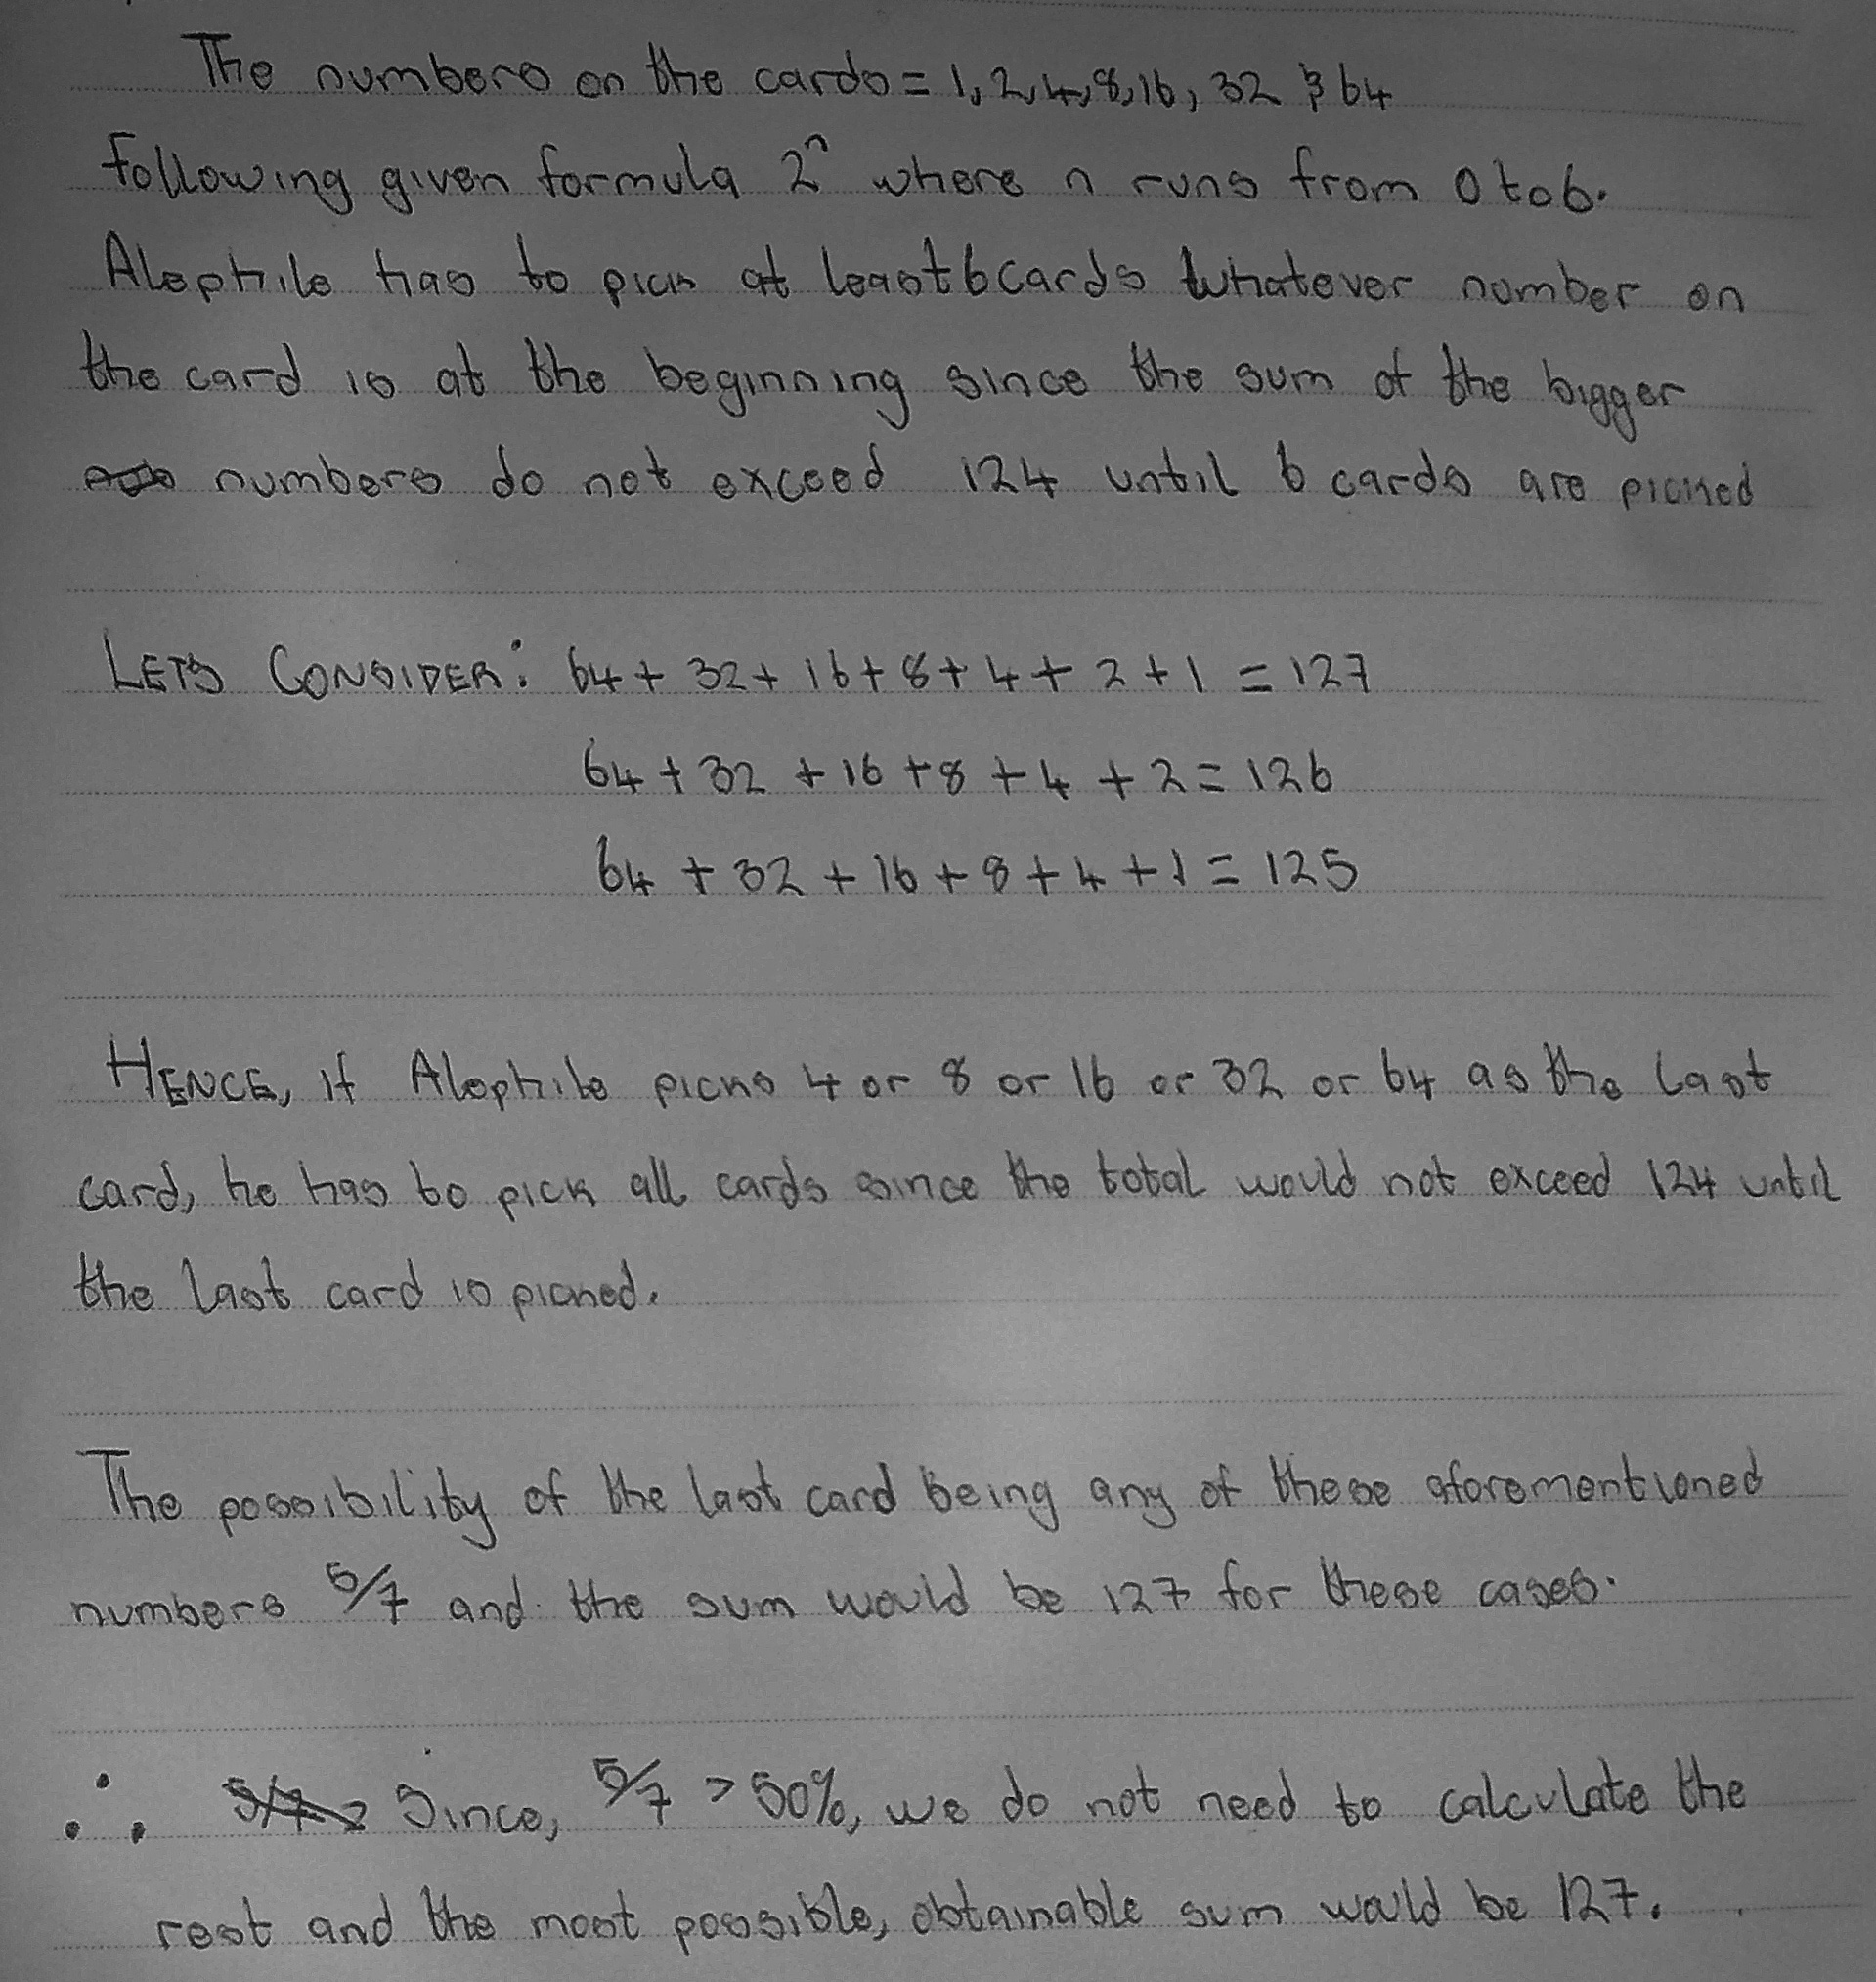 The numbers on the cards = 1, 2, 4, 8, 16, 32 & 64
Following given formula 2ⁿ where n runs from 0 to 6.
Alephile has to pick at least 6 cards whatever number on
the card is at the beginning since the sum of the bigger
numbers do not exceed 124 until 6 cards are picked
LETS CONSIDER: 64 + 32 + 16 + 8 + 4 + 2 + 1 = 127
64 + 32 + 16 + 8 + 4 + 2 = 126
64 + 32 + 16 + 8 + 4 + 1 = 125
HENCE, if Alephile picks 4 or 8 or 16 or 32 or 64 as the last
card, he has to pick all cards since the total would not exceed 124 until
the last card is picked.
The possibility of the last card being any of these aforementioned
numbers 5/7 and the sum would be 127 for these cases.
∴ Since, 5/7 > 50%, we do not need to calculate the
rest and the most possible, obtainable sum would be 127.